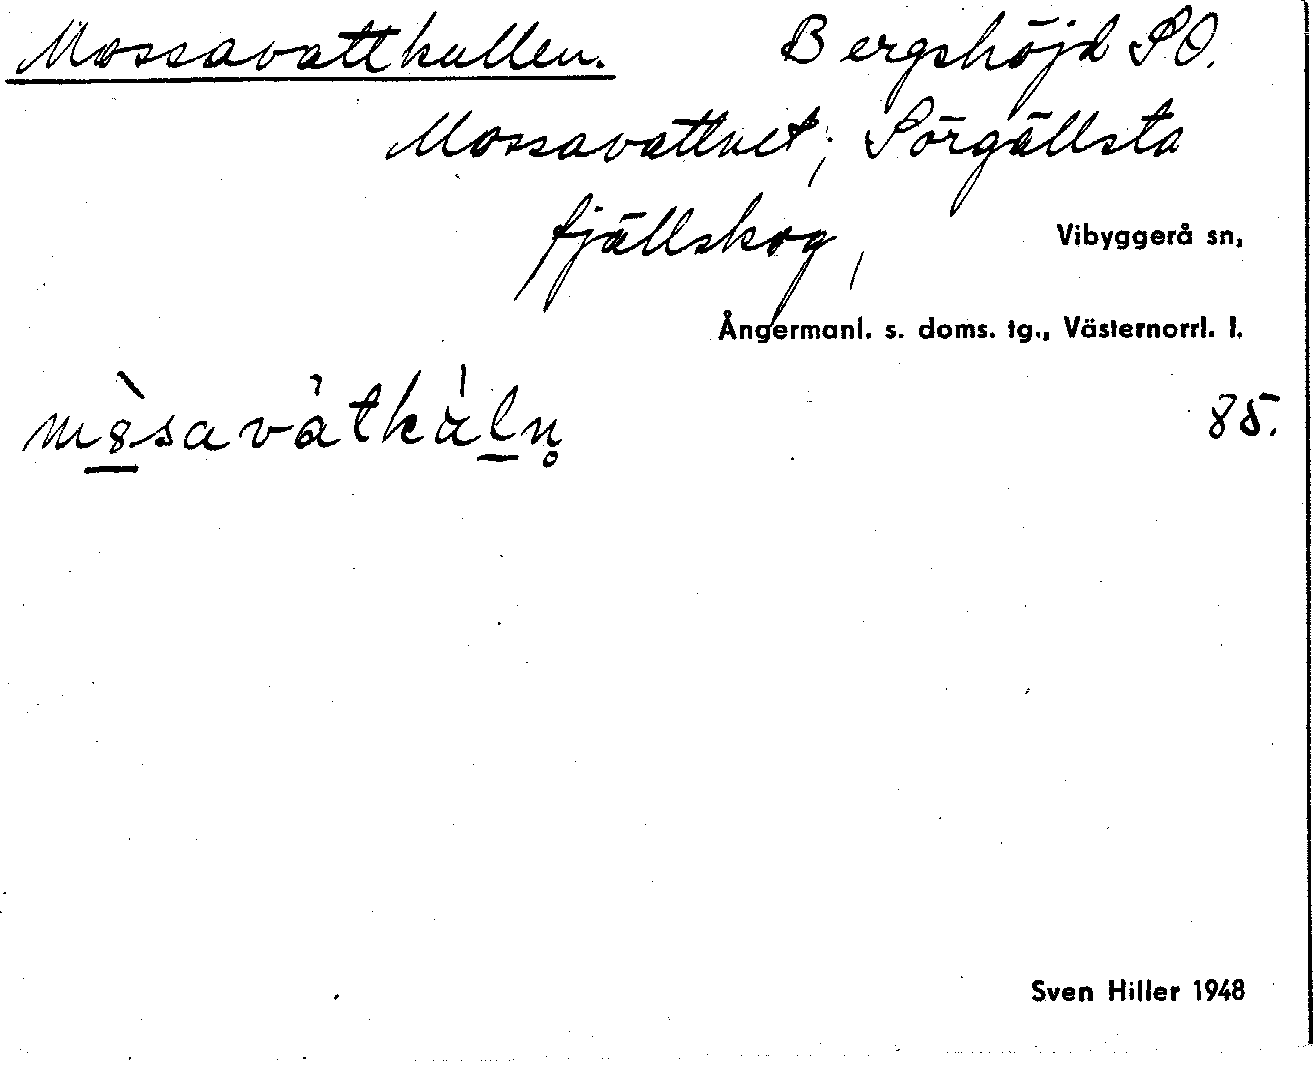 Mossavattkullen. Bergshöjd SO.
Mossavattnet; Sörgällsta
fjällskog,
Vibyggerå sn,
Ångermanl. s. doms. tg., Västernorrl. l.
85.
Sven Hiller 1948